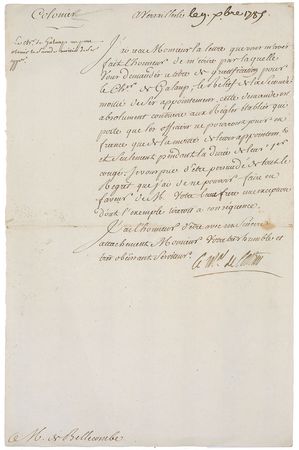 Colonies
A Versailles le 9 xbre 1785
J'ai reçu Monsieur la lettre que vous m'avez
fait l'honneur de m'écrire par laquelle
Vous demandez à titre de gratification pour
le Ch.er de Galaup, le de la Seconde
moitié de ses appointemens, cette demande est
absolument contraire aux Regles établies qui
porte que les officiers ne peuvent jouir en
france que de la moitié de leurs appointem.s
et seulement pendant la durée de leurs
congés; je vous prie d'être persuadé de tout le
Regret que j'ai de ne pouvoir faire en
faveur de M. Votre une exception
dont l'exemple tireroit a conséquence.
J'ai l'honneur d'être avec une sincere
attachement Monsieur Votre très humble et
très obéissant Serviteur.
Le M.al de Castries
M. de Bellecombe